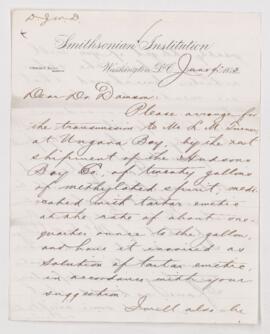 D. J. W. D.
Smithsonian Institution
Washington, D.C. June 9, 188
Dear Dr. Dawson:
Please arrange for
the transmission to Mr. L. M. Turner,
at Ungava Bay, by the next
shipment of the Hudson's
Bay Co., of twenty gallons
of methylated spirit, medi-
cated with tartar emetic
at the rate of about one
quarter ounce to the gallon,
and have it invoiced as
solution of tartar emetic,
in accordance with your
suggestion.
I will also be